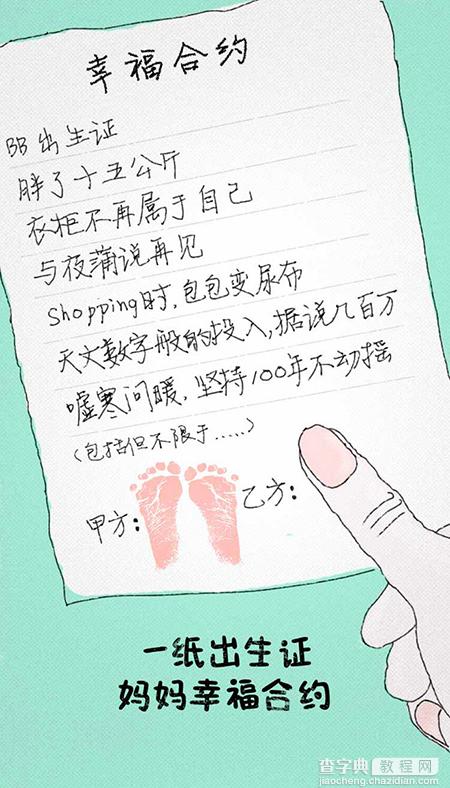 幸福合约
BB出生证
胖了十五公斤
衣柜不再属于自己
与夜蒲说再见
shopping时,包包变尿布
天文数字般的投入,据说几百万
嘘寒问暖,坚持100年不动摇
(包括但不限于.....)
甲方: 乙方:
一纸出生证
妈妈幸福合约
查字典 教程网
jiaocheng.chazidian.com